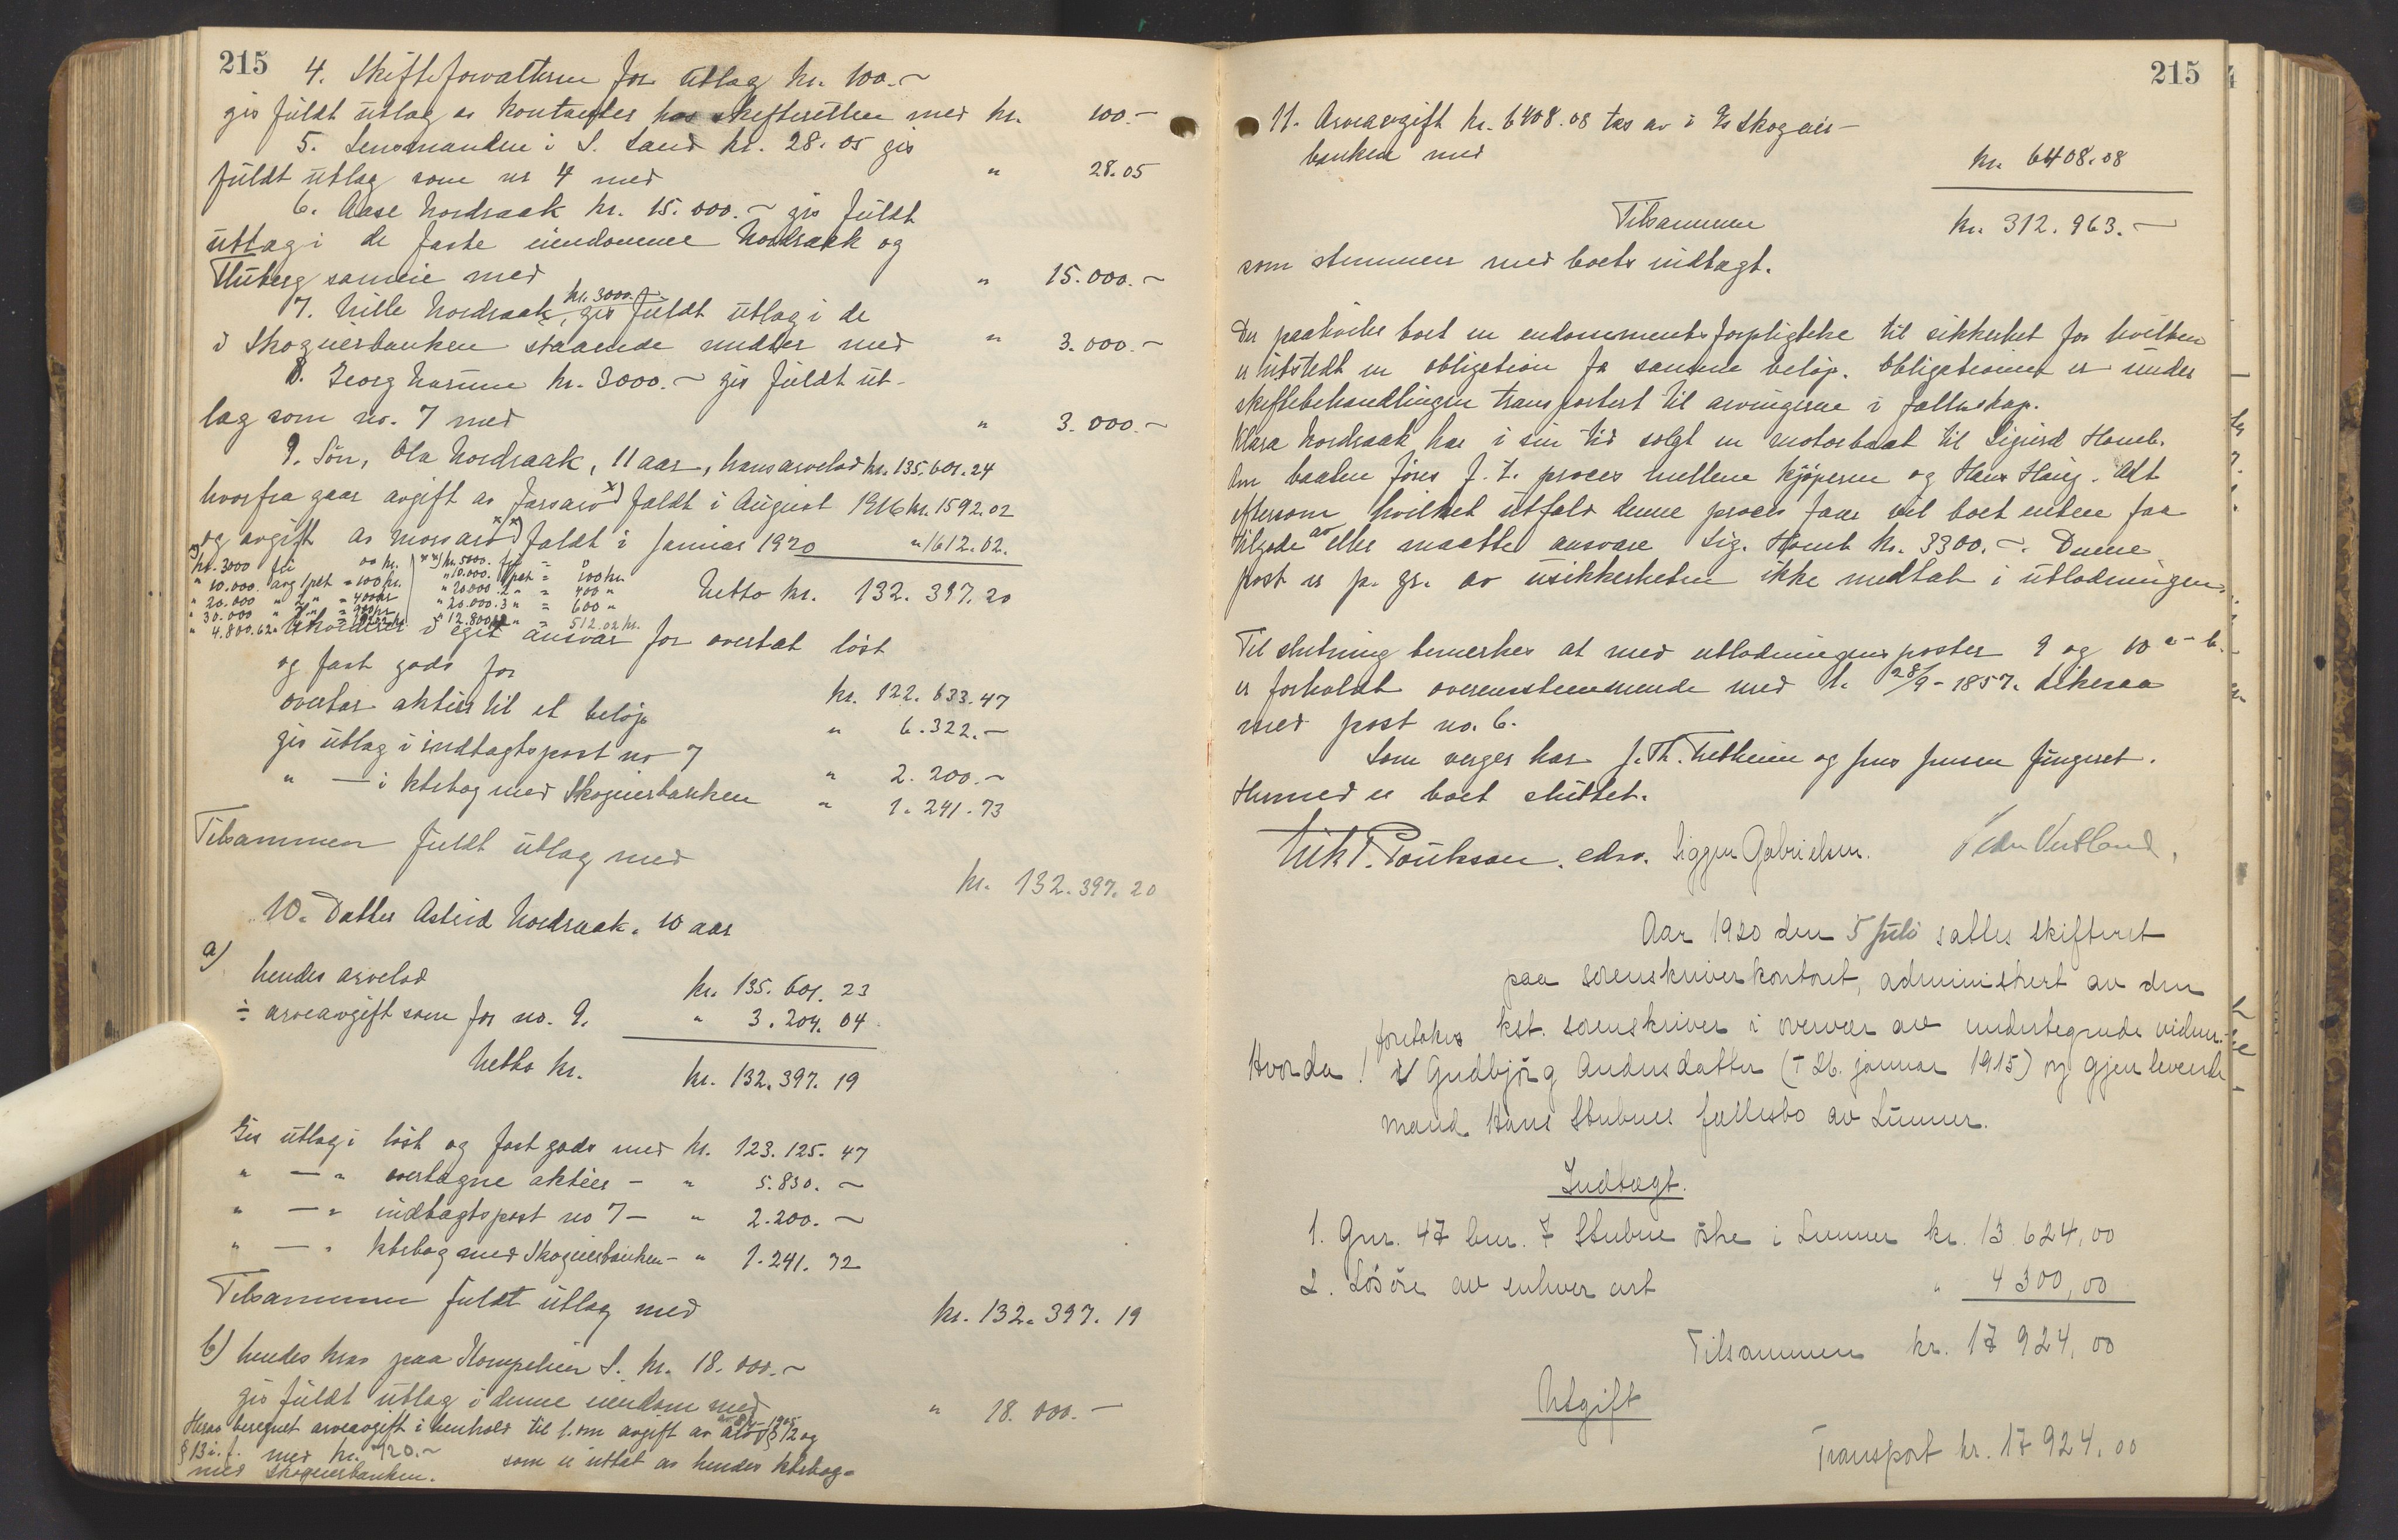 215
4. Skifteforvalteren for utlæg kr. 100.-
gis fuldt utlæg av kontanter hos skifteretten med kr. 100.-
5. Lensmanden i S. Land kr. 28.05 gis
fuldt utlæg som nr 4 med " 28.05
6. Aase Nordraak kr. 15.000.- gis fuldt
utlæg i de faste eiendomme Nordraak og
sameie med " 15.000.-
7. Nille Nordraak, kr. 3000.- gis fuldt utlæg i de
i Skogeierbanken staaende midler med " 3.000.-
8. Georg kr. 3000.- gis fuldt ut-
læg som no. 7 med " 3.000.-
9. Søn, Ola Nordraak, 11 aar, hans arvelod kr. 135.601.24
hvorfra gaar avgift av farsarv x) faldt i August 1916 kr. 1592.02
og avgift av morsarv xx) faldt i Januar 1920 " 1612.02.
x) kr. 3000 fri 00 kr. xx) kr. 5000. fri = 0
" 10.000. avg 1 pct = 100 kr. " 10.000. 1 pct = 100 kr.
" 20.000 " 2 " = 400 kr " 20.000 2 " = 400 "
" 30.000 " 3 " = 900 kr " 20.000. 3 " = 600 "
Netto kr. 132.397.20
" 4.800.62 " 512.02 kr.
i eget ansvar for overtat løst
og fast gods for kr. 122.633.47
overtar aktier til et beløp " 6.322.-
gis utlæg i indtægtspost no 7 " 2.200.-
" — i ktrbog med Skogeierbanken " 1.241.73
Tilsammen fuldt utlæg med kr. 132.397.20
10. Datter Astrid Nordraak. 10 aar
a) hendes arvelod kr. 135.601.23
÷ arveavgift som for no. 9. " 3.204.04
Netto kr. kr. 132.397.19
Gis utlæg i løst og fast gods med kr. 123.125.47
" — " overtagne aktier - " 5.830.-
" — " indtægtspost no 7 - " 2.200.-
" — " ktrbog med Skogeierbanken - " 1.241.72
Tilsammen fuldt utlæg med kr. 132.397.19
b) hendes krav paa S. kr. 18.000.-
gis fuldt utlæg i denne eiendom med " 18.000.-
Herav beregnet arveavgift i henhold til l. om avgift av arv av 8/4-1905 § 12 og
§ 13 i.f. med kr. 720.- som er uttat av hendes ktrbog
med Skogeierbanken.
215
11. Arveavgift kr. 6408.08 tas av i A/s Skogeier-
banken med kr. 6408.08
Tilsammen kr. 312.963.-
som stemmer med boets indtægt.
Der paahviler boet en endossementsforpligtelse til sikkerhet for hvilken
er utstedt en obligation for samme beløp. Obligationen er under
skiftebehandlingen transportert til arvingerne i fællesskap.
Klara Nordraak har i sin tid solgt en motorbaat til Sigurd Homb.
Om baaten føres f. t. proces mellem kjøperen og Hans Haug. Alt
eftersom hvilket utfald denne proces faar vil boet enten faa
tilgode av eller maatte ansvare Sig. Homb kr. 3300.-. Denne
post er p. gr. av usikkerheten ikke medtat i utlodningen.
Til slutning bemerkes at med utlodningens poster 9 og 10 a - b.
er forholdt overensstemmende med l. 28/9-1857. Likesaa
med post no. 6.
Som verger har J. Th. og Jens Jensen fungeret.
Hermed er boet sluttet.
Nik P. Paulsen. edsv. Sigger Gabrielsen. Peder
Aar 1920 den 5 juli sattes skifteret
paa sorenskriverkontoret, administrert av den
kst. sorenskriver i overvær av undertegnede vidner.
Hvorda! foretokes Gudbjørg Andersdatter († 26. januar 1915) og gjenlevende
mand Hans Stubnes fællesbo av Lunner.
Indtægt.
1. Gnr. 47 bnr. 7 Stubne østre i Lunner kr. 13 624,00
2. Løsøre av enhver art " 4 300,00
Tilsammen kr. 17 924,00
Utgift
Transport kr. 17 924,00